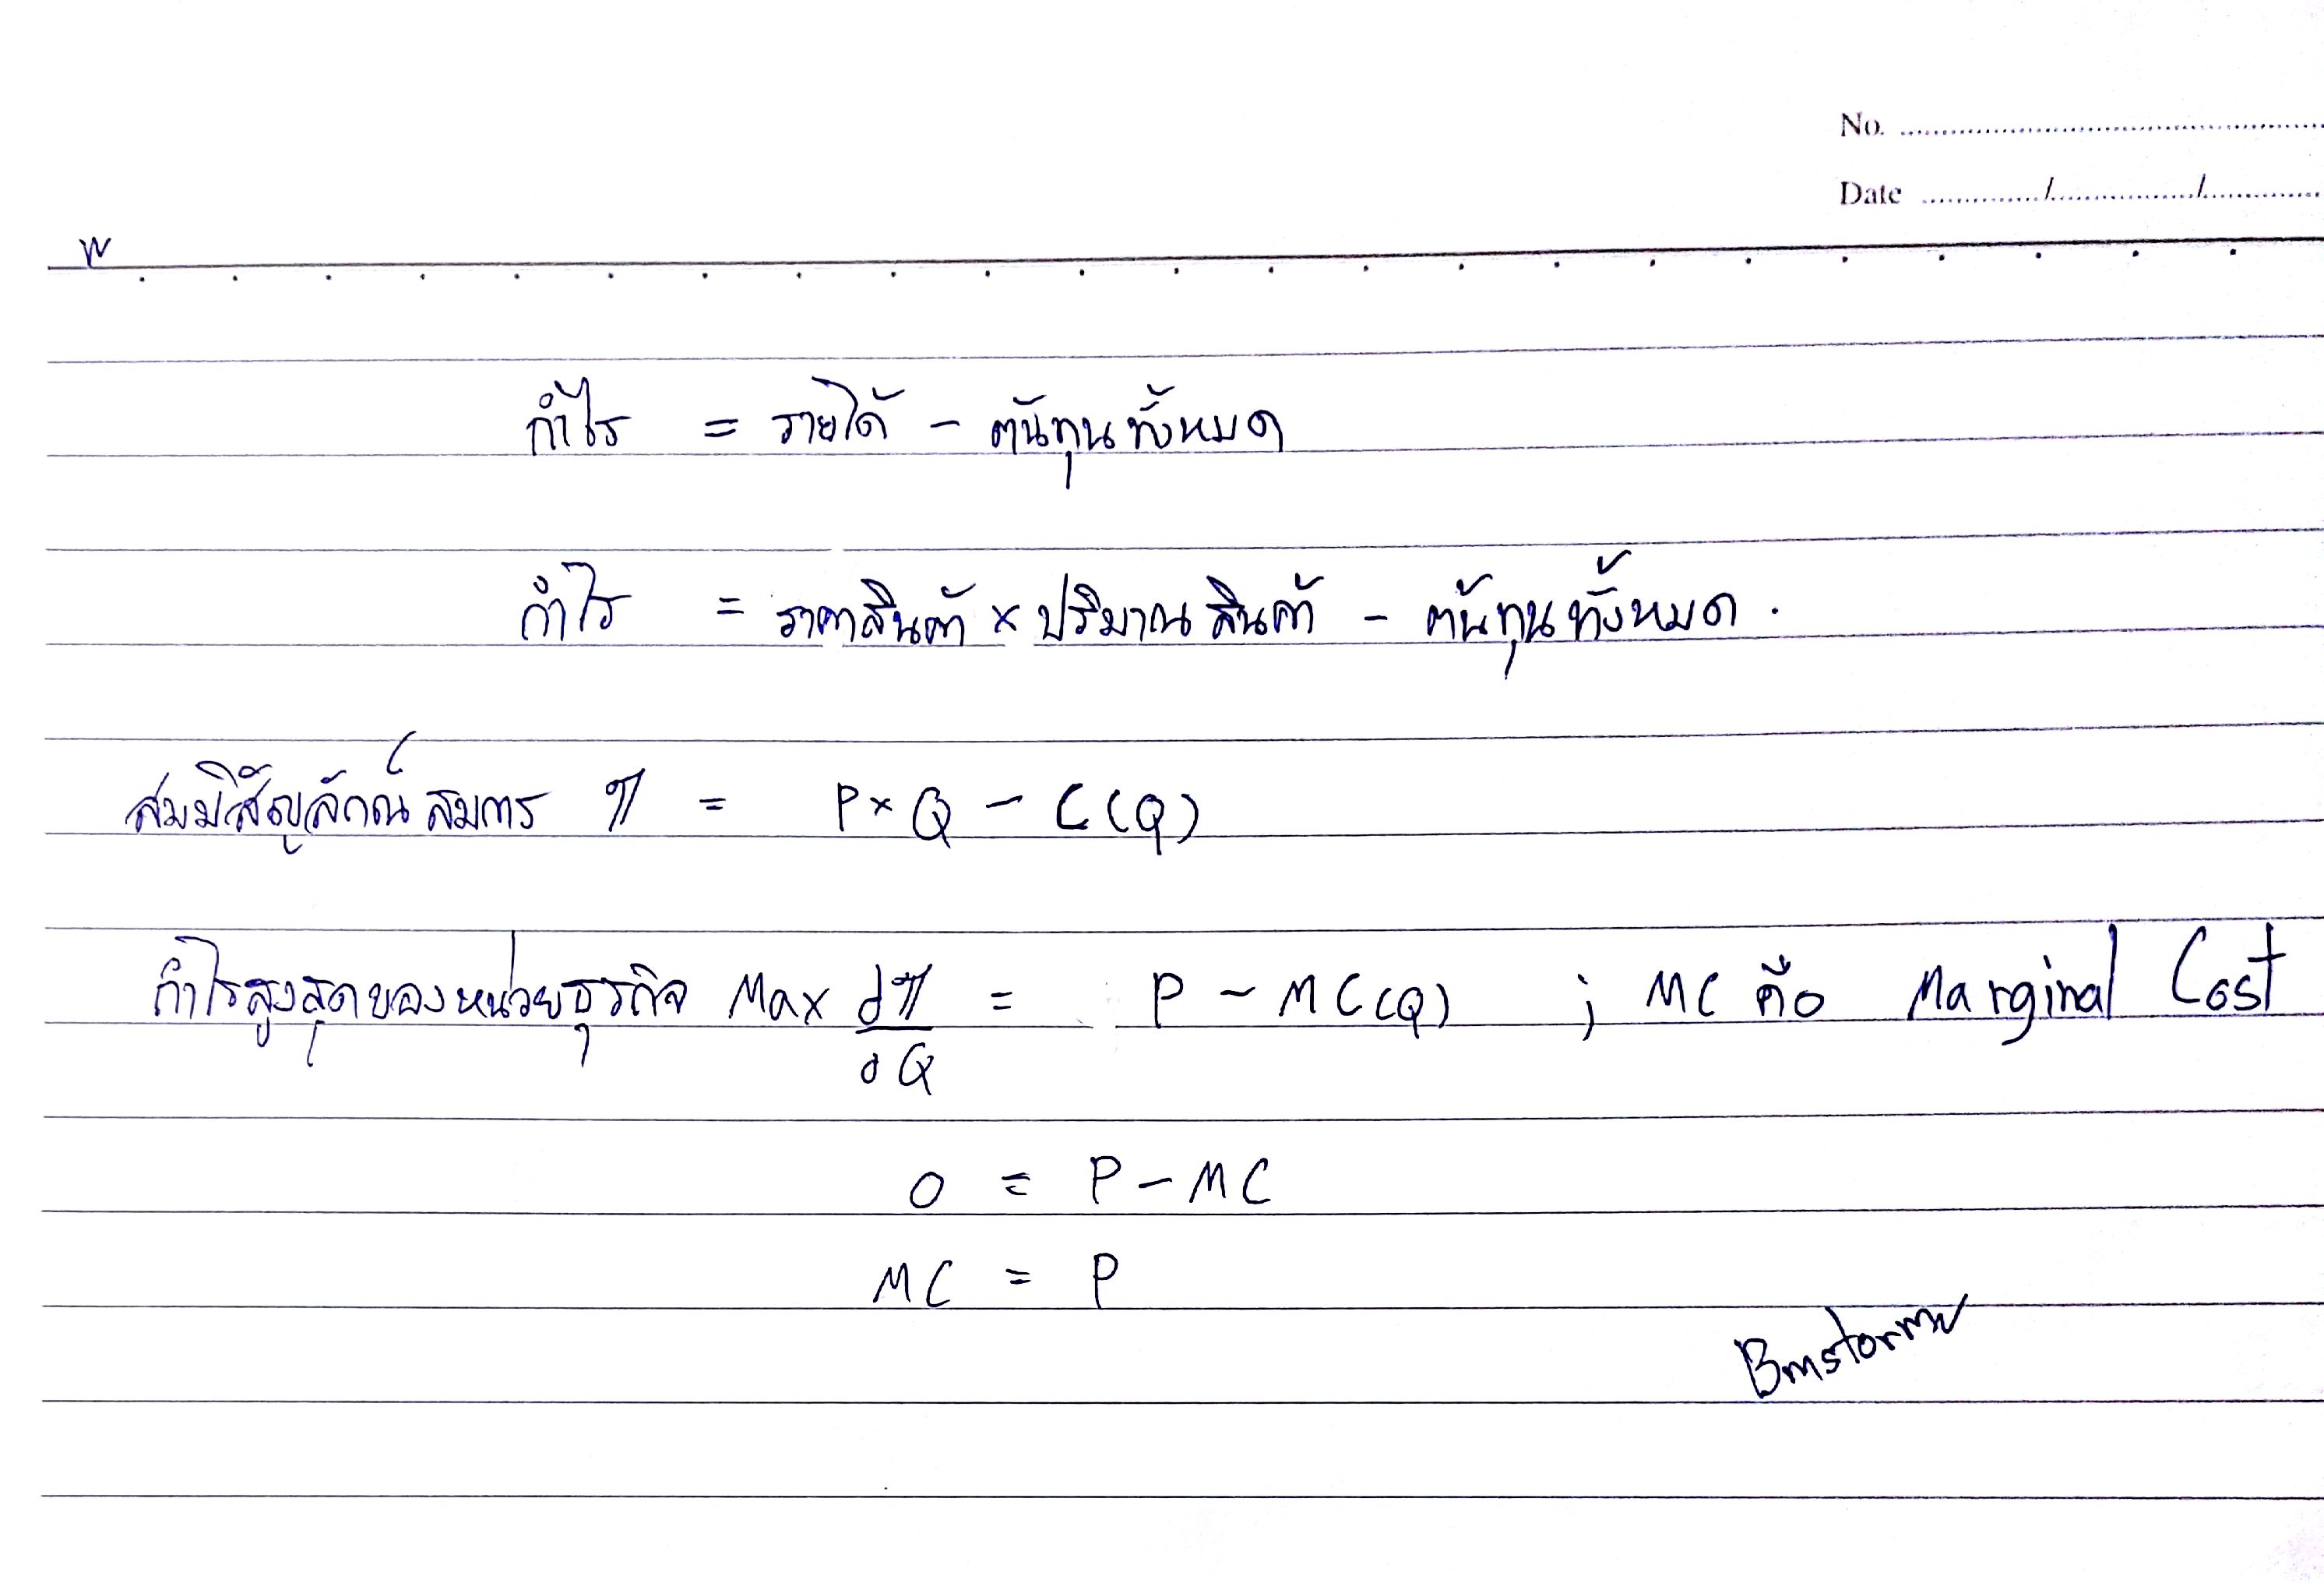 No.
Date / /
กำไร = รายได้ - ต้นทุนทั้งหมด
กำไร = ราคาสินค้า × ปริมาณสินค้า - ต้นทุนทั้งหมด .
สมการ π = P × Q - C(Q)
กำไรสูงสุดของหน่วยธุรกิจ Max dπ/dQ = P - MC(Q) ; MC คือ Marginal Cost
0 = P - MC
MC = P